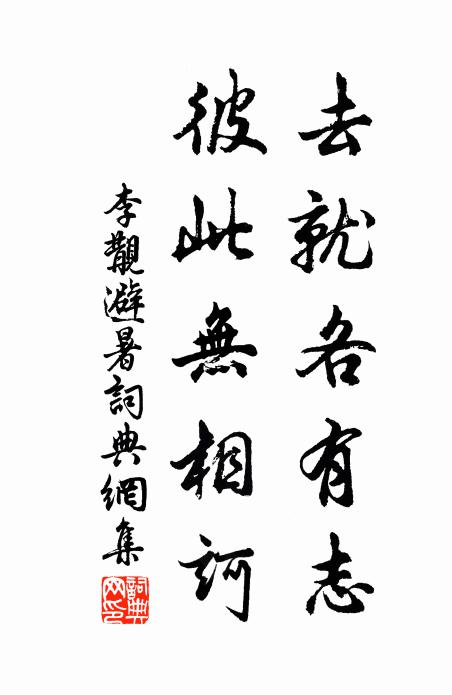 去就各有志
彼此無相訶
李覯避暑詞典網集
詞典網印